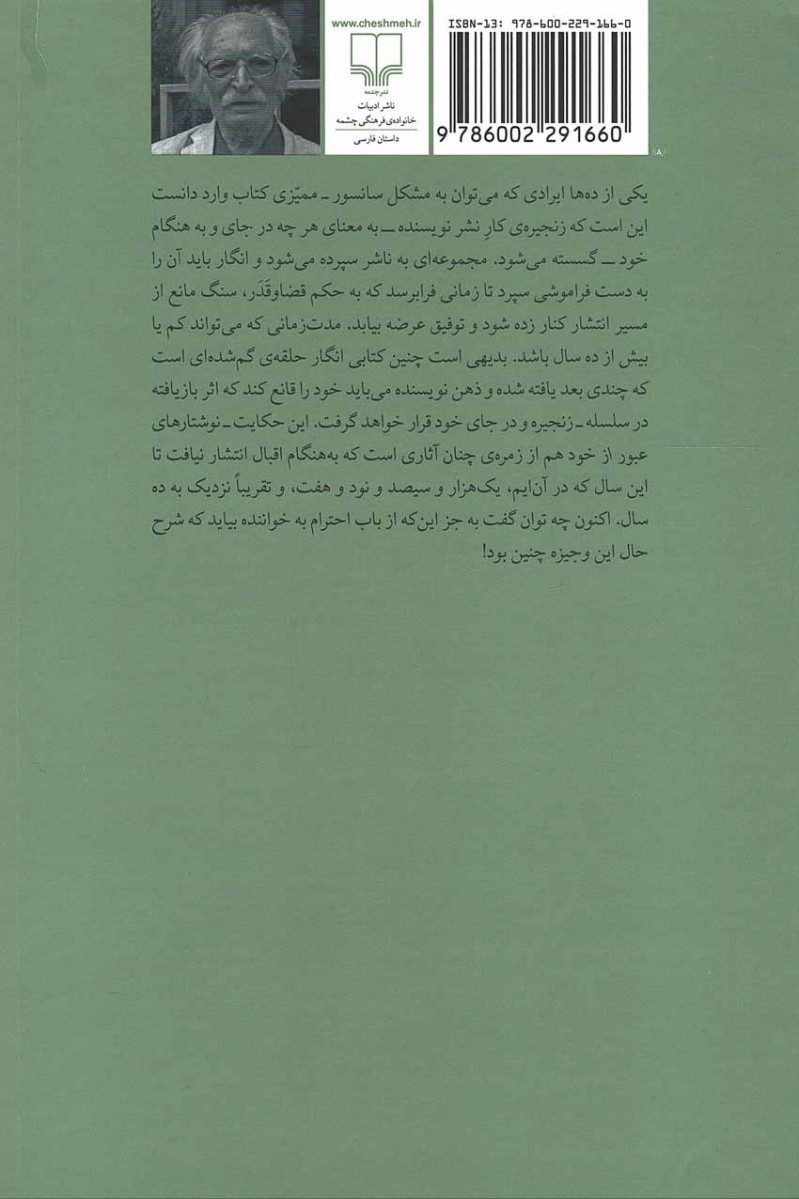 www.cheshmeh.ir
نشرچشمه
ناشر ادبیات
خانواده‌ی فرهنگی چشمه
داستان فارسی
ISBN-13: 978-600-229-166-0
9 786002 291660
یکی از ده‌ها ایرادی که می‌توان به مشکل سانسور ـ ممیّزی کتاب وارد دانست
این است که زنجیره‌ی کارِ نشر نویسنده ــ به معنای هر چه در جای و به هنگام
خود ــ گسسته می‌شود. مجموعه‌ای به ناشر سپرده می‌شود و انگار باید آن را
به دست فراموشی سپرد تا زمانی فرابرسد که به حکم قضاوقَدَر، سنگ مانع از
مسیر انتشار کنار زده شود و توفیق عرضه بیابد. مدت‌زمانی که می‌تواند کم یا
بیش از ده سال باشد. بدیهی است چنین کتابی انگار حلقه‌ی گم‌شده‌ای است
که چندی بعد یافته شده و ذهن نویسنده می‌باید خود را قانع کند که اثر بازیافته
در سلسله ـ زنجیره و در جای خود قرار خواهد گرفت. این حکایت ـ نوشتارهای
عبور از خود هم از زمره‌ی چنان آثاری است که به‌هنگام اقبال انتشار نیافت تا
این سال که در آن‌ایم، یک‌هزار و سیصد و نود و هفت، و تقریباً نزدیک به ده
سال. اکنون چه توان گفت به جز این‌که از باب احترام به خواننده بیاید که شرح
حال این وجیزه چنین بود!